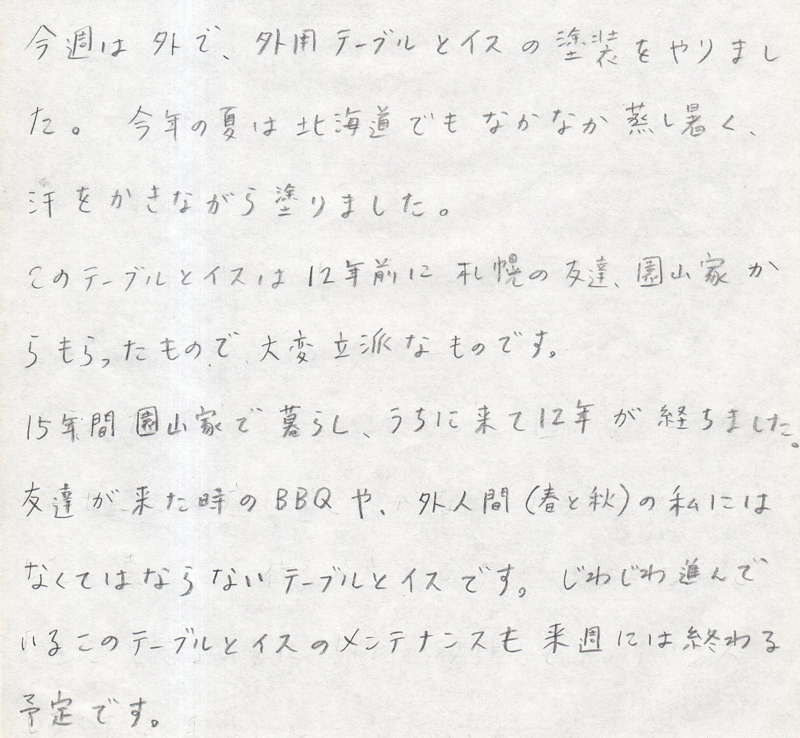 今週は外で、外用テーブルとイスの塗装をやりまし
た。 今年の夏は北海道でもなかなか蒸し暑く、
汗をかきながら塗りました。
このテーブルとイスは12年前に札幌の友達、園山家か
らもらったもので大変立派なものです。
15年間園山家で暮らし、うちに来て12年が経ちました。
友達が来た時のBBQや、外人間(春と秋)の私には
なくてはならないテーブルとイスです。じわじわ進んで
いるこのテーブルとイスのメンテナンスも来週には終わる
予定です。